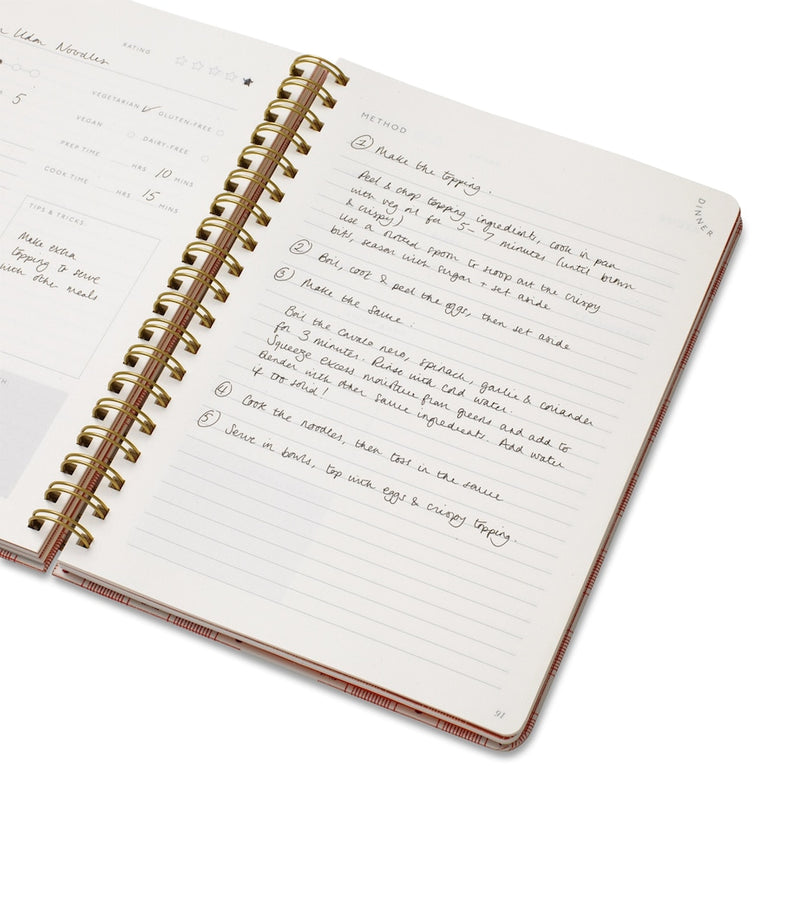 Udon Noodles
RATING
5
VEGETARIAN ✓ GLUTEN-FREE
VEGAN DAIRY-FREE
PREP TIME HRS 10 MINS
COOK TIME HRS 15 MINS
TIPS & TRICKS
Make extra
topping to serve
with other meals
METHOD
DINNER
① Make the topping:
Peel & chop topping ingredients, cook in pan
with veg oil for 5-7 minutes (until brown
& crispy)
Use a slotted spoon to scoop out the crispy
bits, season with sugar + set aside
② Boil, cool & peel the eggs, then set aside
③ Make the sauce:
Boil the cavalo nero, spinach, garlic & coriander
for 3 minutes. Rinse with cold water.
Squeeze excess moisture from greens and add to
blender with other sauce ingredients. Add water
if too solid!
④ Cook the noodles, then toss in the sauce
⑤ Serve in bowls, top with eggs & crispy topping.
91